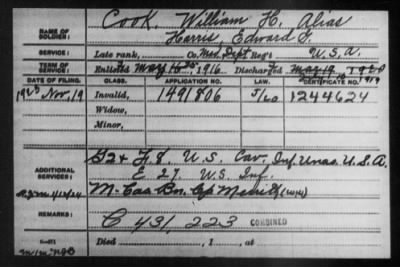 NAME OF SOLDIER: Cook, William H. Alias
Harris, Edward G.
SERVICE: Late rank, Co. Med. Dept Reg't U. S. A.
TERM OF SERVICE: Enlisted May 1916. Discharged May 19 1920
DATE OF FILING. CLASS. APPLICATION NO. LAW. CERTIFICATE NO.
Nov. 19 Invalid, 1491806 1244624
Widow,
Minor,
ADDITIONAL SERVICES: G 2 & F 8. U.S. Cav. Inf. Unas. U.S.A.
E 27. U.S. Inf.
REMARKS: C 431,223 COMBINED
Died , 1 , at